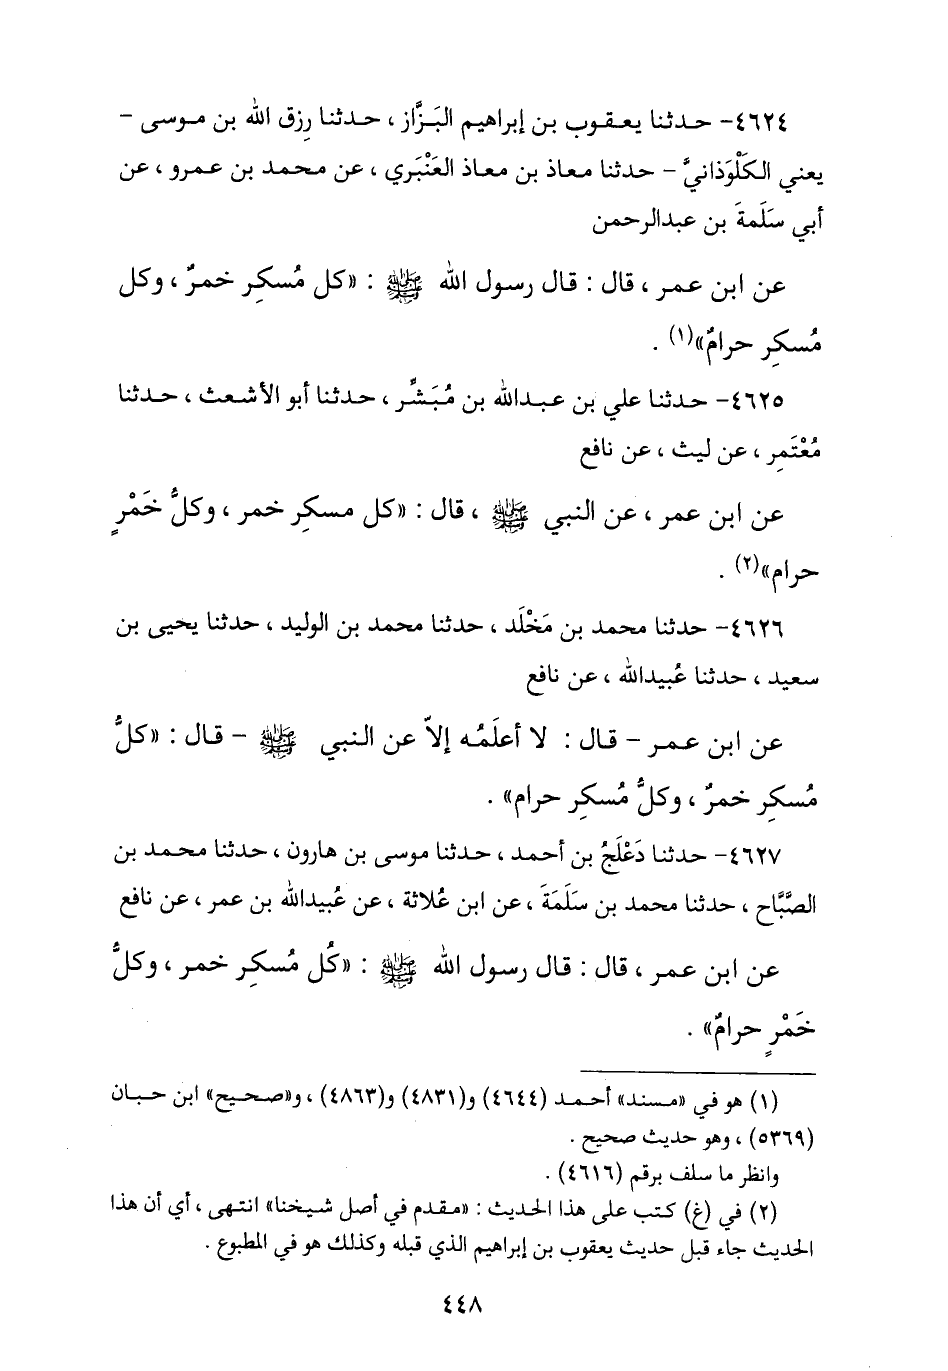 ٤٦٢٤- حدثنا يعقوب بن إبراهيم البَزَّاز ، حدثنا رِزق الله بن موسى -
يعني الكَلْوَذانيَّ - حدثنا معاذ بن معاذ العَنْبَري ، عن محمد بن عمرو ، عن
أبي سَلَمةَ بن عبدالرحمن
عن ابن عمر ، قال : قال رسول الله ﷺ : «كل مُسكِر خمرٌ ، وكل
مُسكِر حرامٌ»(١) .
٤٦٢٥- حدثنا علي بن عبدالله بن مُبَشِّر ، حدثنا أبو الأشعث ، حدثنا
مُعْتَمِر ، عن ليث ، عن نافع
عن ابن عمر ، عن النبي ﷺ ، قال : «كل مسكِر خمر ، وكلُّ خَمْرٍ
حرام»(٢) .
٤٦٢٦- حدثنا محمد بن مَخْلَد ، حدثنا محمد بن الوليد ، حدثنا يحيى بن
سعيد ، حدثنا عُبيدالله ، عن نافع
عن ابن عمر - قال : لا أعلَمُه إلاّ عن النبي ﷺ - قال : «كلُّ
مُسكِر خمرٌ ، وكلُّ مُسكِر حرام» .
٤٦٢٧- حدثنا دَعْلَجُ بن أحمد ، حدثنا موسى بن هارون ، حدثنا محمد بن
الصَّبَّاح ، حدثنا محمد بن سَلَمَةَ ، عن ابن عُلاثة ، عن عُبيدالله بن عمر ، عن نافع
عن ابن عمر ، قال : قال رسول الله ﷺ : «كُل مُسكِر خمر ، وكلُّ
خَمْرٍ حرامٌ» .
(١) هو في «مسند» أحمد (٤٦٤٤) و(٤٨٣١) و(٤٨٦٣) ، و«صحيح» ابن حبان
(٥٣٦٩) ، وهو حديث صحيح .
وانظر ما سلف برقم (٤٦١٦) .
(٢) في (غ) كتب على هذا الحديث : «مقدم في أصل شيخنا» انتهى ، أي أن هذا
الحديث جاء قبل حديث يعقوب بن إبراهيم الذي قبله وكذلك هو في المطبوع .
٤٤٨